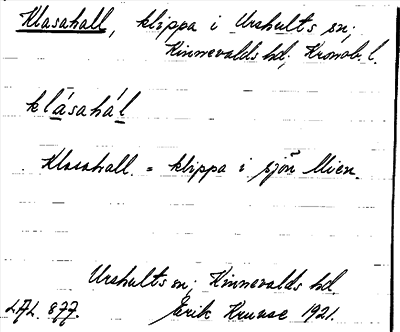 Klasahall, klippa i Urshults sn,
Kinnevalds hd, Kronob. l.
klásahál
Klasahall = klippa i sjön Mien.
Urshults sn, Kinnevalds hd.
LAL. 877. Erik Kruuse 1921.